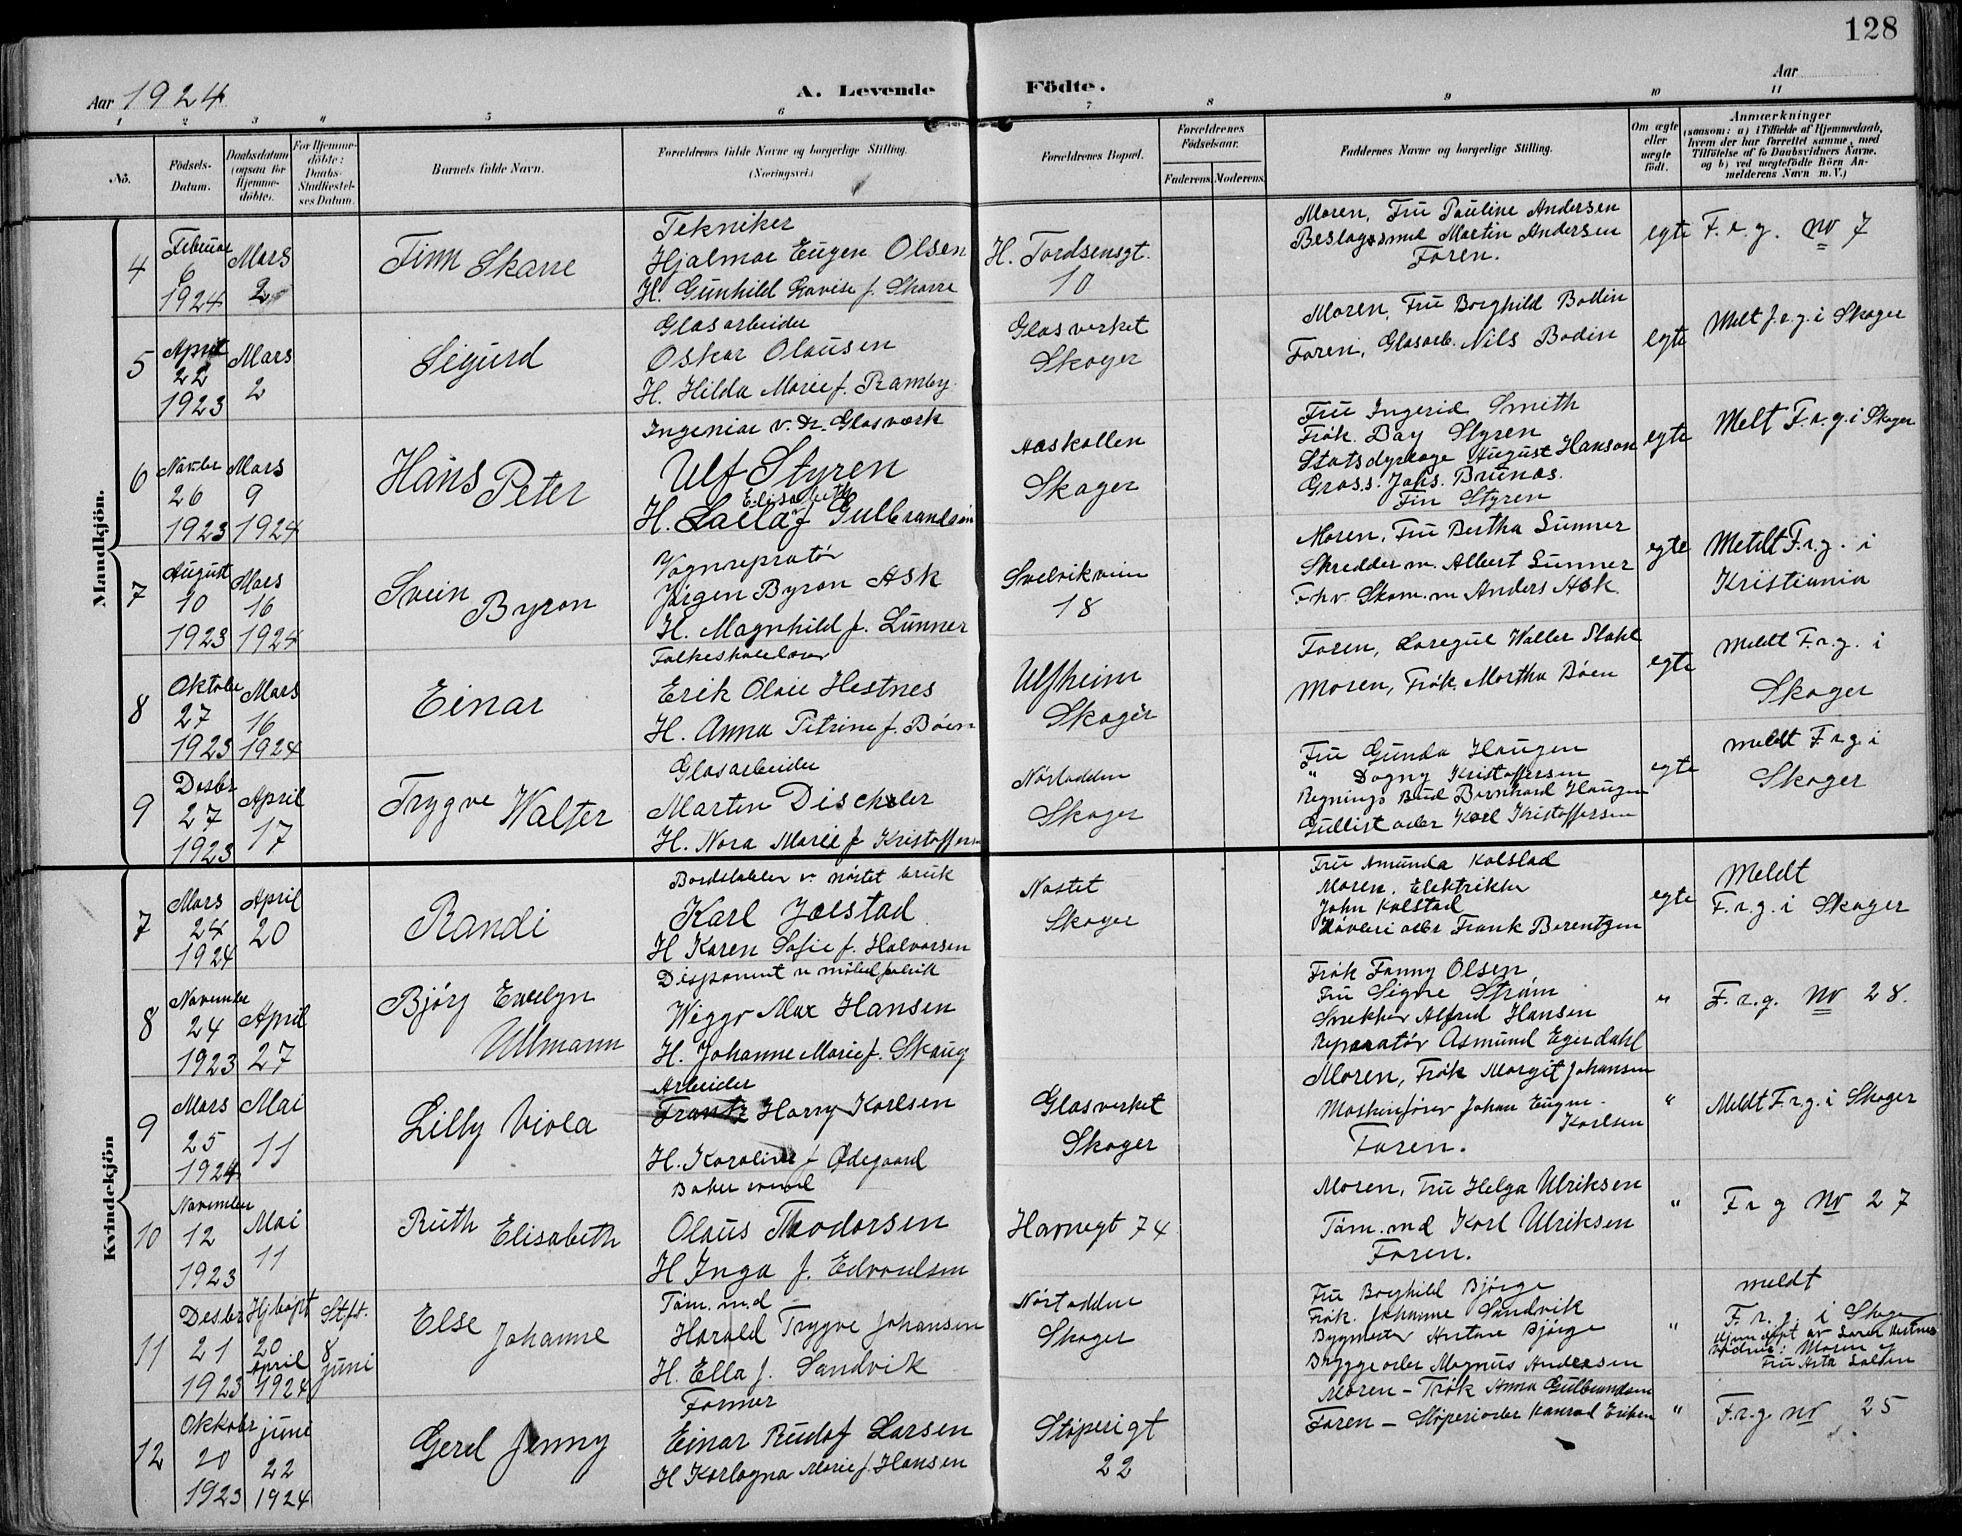 128
Aar 1924
A. Levende Födte.
Aar
1 2 3 4 5 6 7 8 9 10 11
No.
Födsels-Datum.
Daabsdatum (ogsaa for Hjemme-döbte).
For Hjemme-döbte: Daabs-Stadfæstel-ses Datum.
Barnets fulde Navn.
Forældrenes fulde Navne og borgerlige Stilling.
(Næringsvei.)
Forældrenes Bopæl.
Forældrenes Födselsaar.
Faderens. Moderens.
Faddernes Navne og borgerlige Stilling.
Om ægte eller uægte født.
Anmærkninger
(saasom: a) i Tilfælde af Hjemmedaab,
hvem der har forrettet samme, med
Tilföielse af to Daabsvidners Navne.
og b) ved uægtefödte Börn An-
melderens Navn m. V.)
Mandkjön.
4
Februar 6 1924
Mars 2
Finn Skarre
Tekniker
Hjalmar Eugen Olsen
H. Gunhild Lovise f. Skarre
H. Tordsensgt.
10
Moren, Fru Pauline Andersen
Beslagsmed Martin Andersen
Faren.
egte
F. r. g. no 7
5
April 22 1923
Mars 2
Sigurd
Glasarbeider
Oskar Olausen
H. Hilda Marie f. Ramby.
Glasverket
Skoger
Moren, Fru Borghild Bodin
Faren, Glasarb. Nils Bodin
egte
Melt f.r.g. i Skoger
6
Novbr 26 1923
Mars 9 1924
Hans Peter
Ingeniør v. Dr. Glasværk
Ulf Styren
Elisabeth
H. Laila f Gulbrandsøn
Aaskollen
Skoger
Fru Ingerid Smith
Frøk. Day Styren
Statsdyrlæge August Hanson
Gross. Johs. Brunæs.
Finn Styren
egte
Melt F.r.g. i Skoger
7
August 10 1923
Mars 16 1924
Svein Byron
Vognrepratør
Jørgen Byron Ask
H. Magnhild f. Lunner
Svelvikveien
18
Moren, Fru Bertha Lunner
Skredder m. Albert Lunner
Fhv. Skom. m Anders Ask.
egte
Meldt F.r.g. i
Kristiania
8
Oktober 27 1923
Mars 16 1924
Einar
Folkeskolelærer
Erik Olai Hestnes
H. Anna Petrine f. Bøen
Ulfheim
Skoger
Faren, Walter Stahl
Moren, Frøk. Martha Bøen
egte
Meldt F.r.g. i
Skoger
9
Desbr 27 1923
April 17
Trygve Walter
Glasarbeider
Martin Dischler
H. Nora Marie f Kristoffersen
Nøstodden
Skoger
Fru Gunda Haugen
" Dagny Kristoffersen
Regnings Bud Bernhard Haugen
Gullistarber Karl Kristoffersen
egte
meldt F.r.g. i
Skoger
Kvindekjön
7
Mars 24 1924
April 20
Randi
Bordstabler v. nøstet bruk
Karl Jolstad
H Karen Sofie f. Halvorsen
Nøstet
Skoger
Fru Amunda Kolstad
Moren. Elektriker
John Kolstad
Høvleriarbr Frank Berentzen
egte
Meldt
F.r.g. i Skoger
8
November 24 1923
April 27
Bjørg Evelyn
Ullmann
Disponent v møbelfabrik
Wiggo Max Hansen
H. Johanne Marie f. Skaug
Frøk Fanny Olsen,
Fru Signe Strøm
Snekker Alfred Hansen
Reparatør Asmund Egerdahl
"
F.r.g. no 28.
9
Mars 25 1924
Mai 11
Lilly Viola
Arbeider
Frantz Harry Karlsen
H. Karoline f Ødegaard
Glasverket
Skoger
Moren, Frøk Margit Johansen
Maskinfører Johan Eugen
Karlsen
Faren.
"
Meldt F.r.g. i Skoger
10
November 12 1923
Mai 11
Ruth Elisabeth
Baker svend
Olaus Thodorsen
H Inga f. Edvardsen
Havnegt 74
Moren, Fru Helga Ulriksen
Tøm. md Karl Ulriksen
Faren.
"
F r g no 27
11
Desbr 21 1923
Hj.døpt 20 April 1924
Stfst. 8 juni
Else Johanne
Tøm. md
Harald Trygve Johansen
H. Ella f. Sandvik
Nøstodden
Skoger
Fru Borghild Bjørge
Frøk. Johanne Sandvik
Bygmester Anton Bjørge
Bryggearber Magnus Andersen
"
meldt
F.r.g. i Skoger
Hjem døpt av Lærer Hestnes
Vidner: Moren og
Fru Asta
12
Oktobr 20 1923
juni 22 1924
Gerd Jenny
Former
Einar Rudolf Larsen
H Karlagna Marie f. Hansen
Støperigt
22
Moren – Frøk Anna Gulbrandsen
Faren – Støperiarber Konrad Eriksen
"
F.r.g. no 25